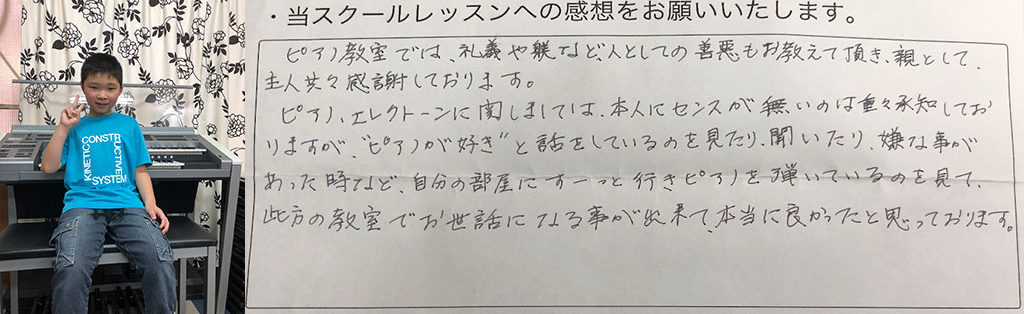 KINETIC
CONSTRUCTIVE
SYSTEM
・当スクールレッスンへの感想をお願いいたします。
ピアノ教室では、礼義や躾など、人としての善悪もお教えて頂き、親として、
主人共々感謝しております。
ピアノ、エレクトーンに関しましては、本人にセンスが無いのは重々承知してお
りますが、"ピアノが好き"と話をしているのを見たり、聞いたり、嫌な事が
あった時など、自分の部屋にすーっと行きピアノを弾いているのを見て、
此方の教室でお世話になる事が出来て、本当に良かったと思っております。